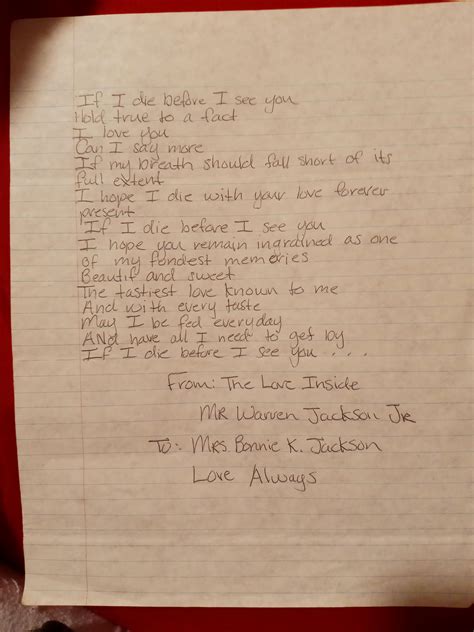 If I die before I see you
Hold true to a fact
I love you
Can I say more
If my breath should fall short of its
full extent
I hope I die with your love forever
present
If I die before I see you
I hope you remain ingrained as one
of my fondest memories
Beautif and sweet
The tastiest love known to me
And with every taste
May I be fed everyday
ANd have all I need to get by
If I die before I see you ....
From: The Love Inside
Mr Warren Jackson Jr
To: Mrs Bonnie K. Jackson
Love Always